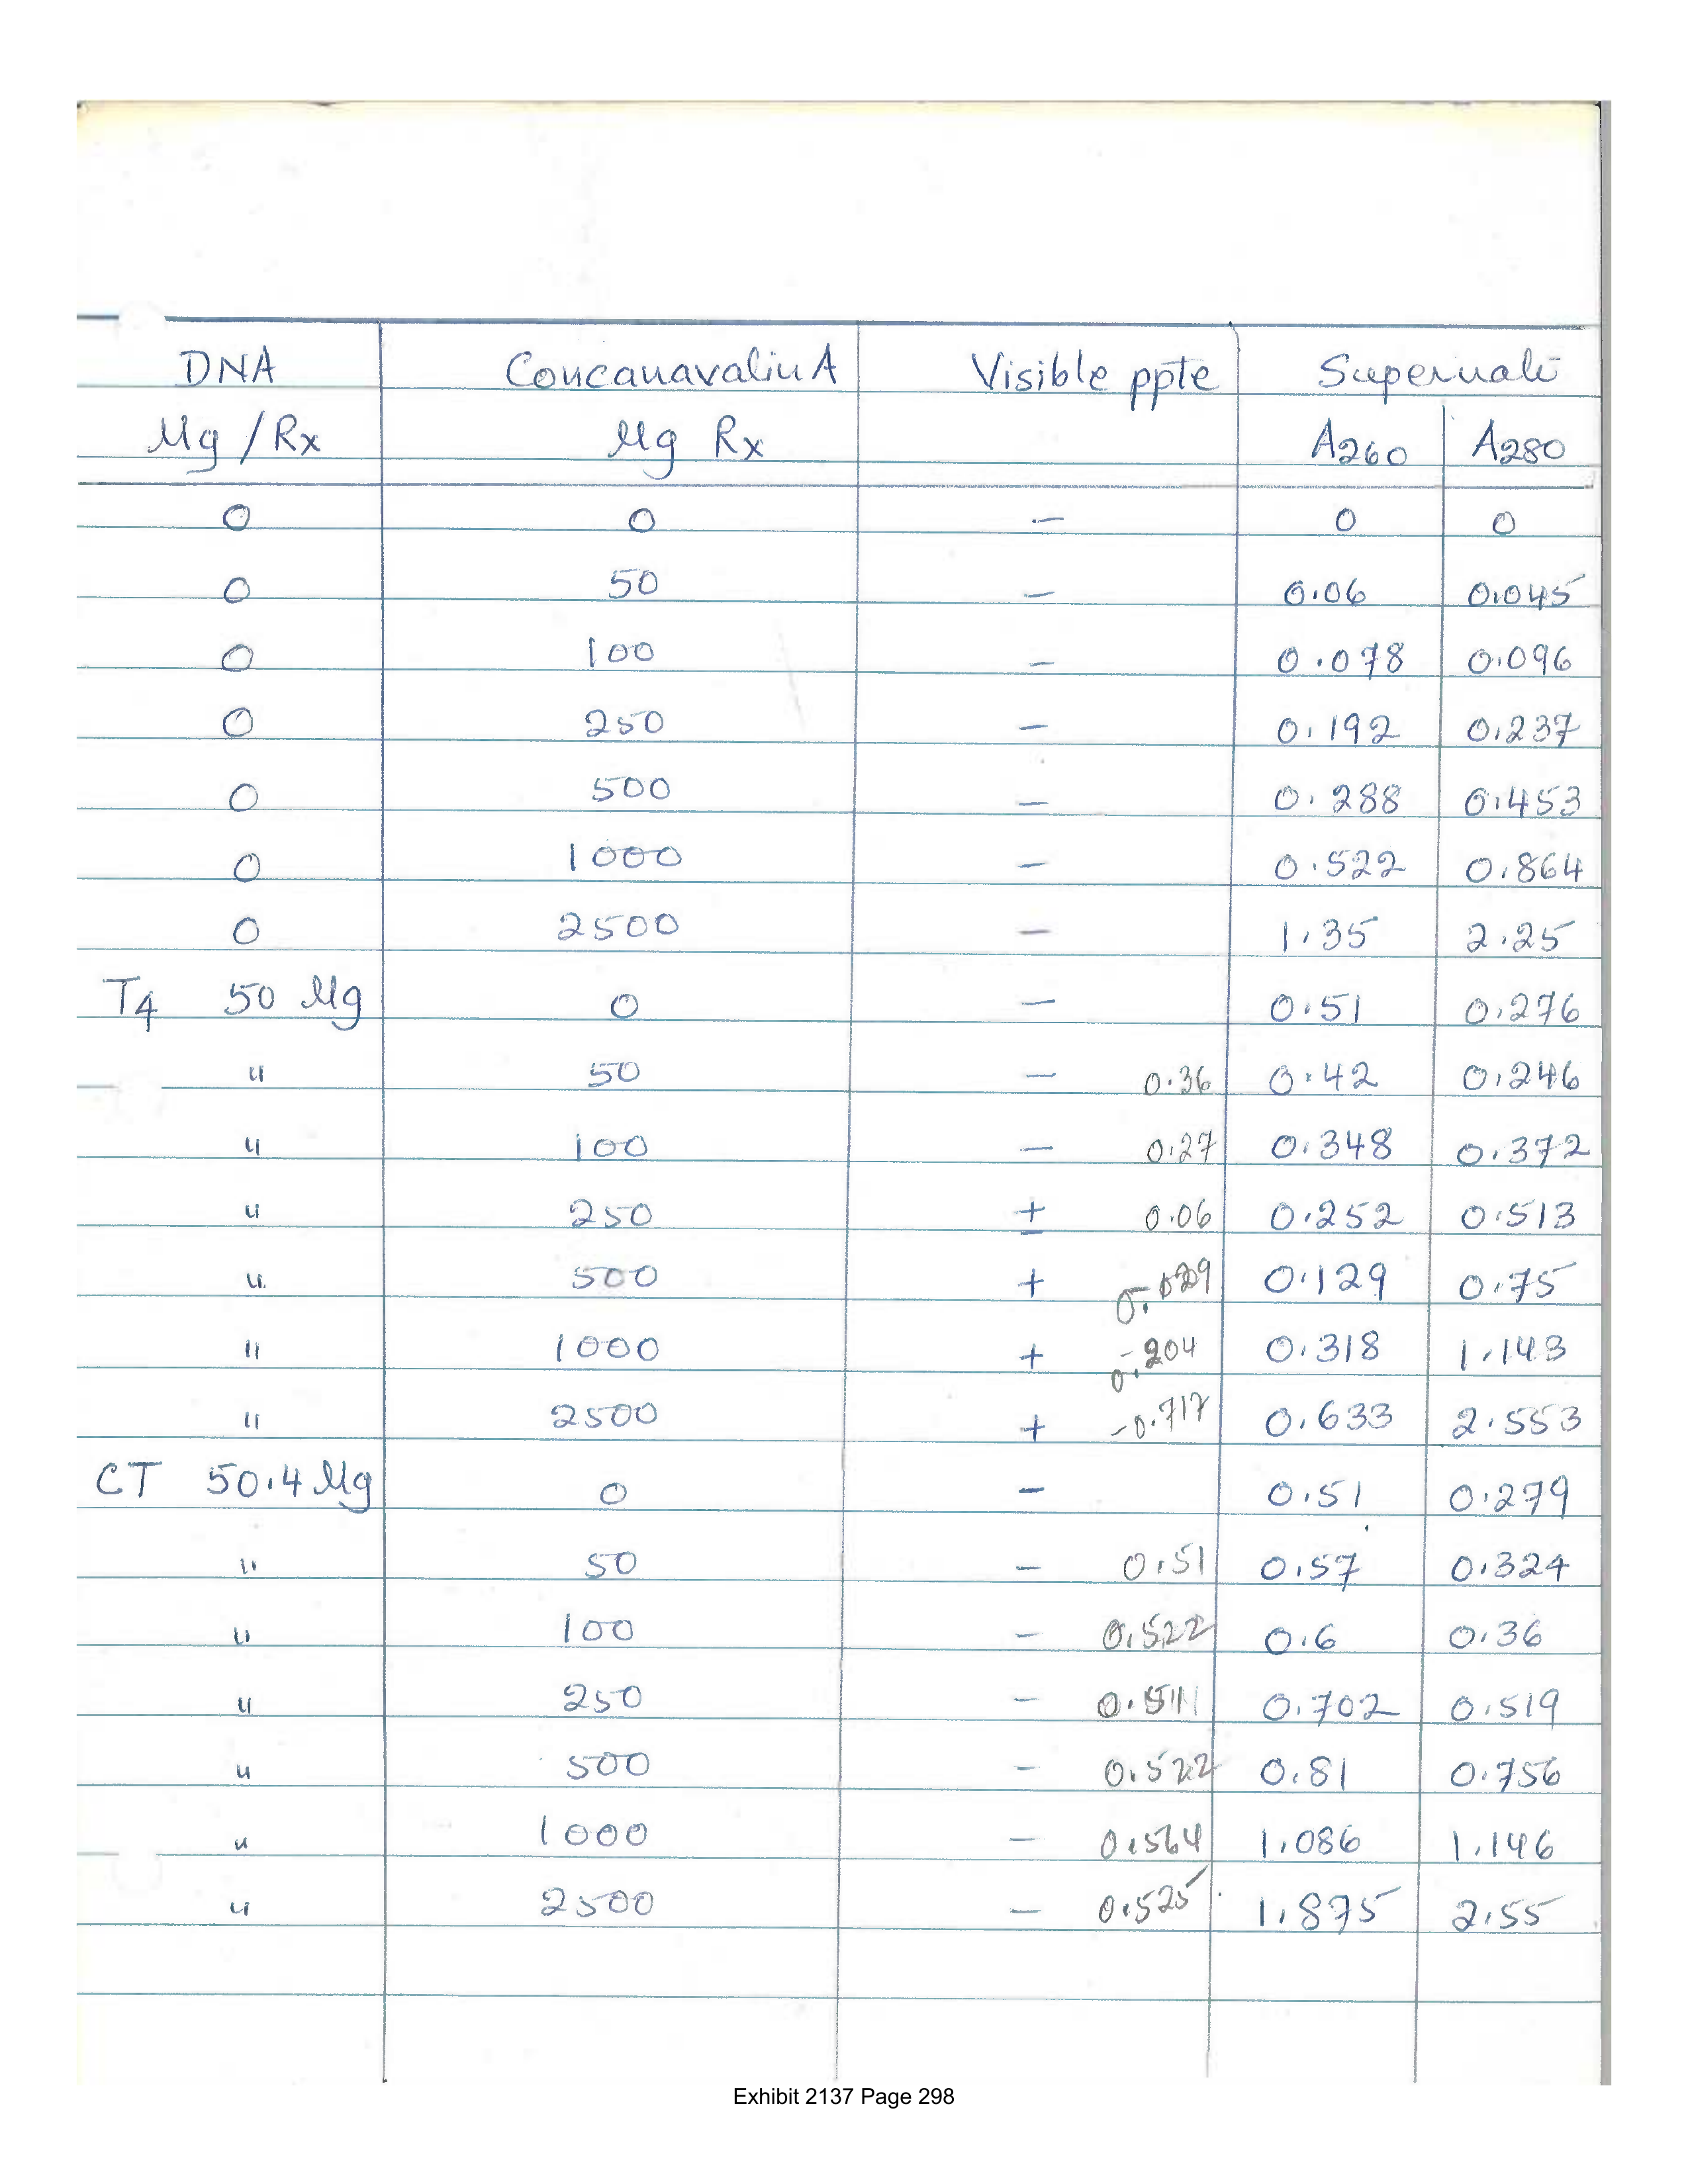 DNA Concanavalin A Visible ppte Supernate
µg /Rx µg Rx A260 A280
0 0 – 0 0
0 50 – 0.06 0.045
0 100 – 0.078 0.096
0 250 – 0.192 0.237
0 500 – 0.288 0.453
0 1000 – 0.522 0.864
0 2500 – 1.35 2.25
T4 50 µg 0 – 0.51 0.276
" 50 – 0.36 0.42 0.246
" 100 – 0.27 0.348 0.372
" 250 ± 0.06 0.252 0.513
" 500 + 0.129 0.75
" 1000 + -0.204 0.318 1.143
" 2500 + -0.717 0.633 2.553
CT 50.4 µg 0 – 0.51 0.279
" 50 – 0.51 0.57 0.324
" 100 – 0.522 0.6 0.36
" 250 – 0.702 0.519
" 500 – 0.522 0.81 0.756
" 1000 – 0.564 1.086 1.146
" 2500 – 0.525 1.875 2.55
Exhibit 2137 Page 298